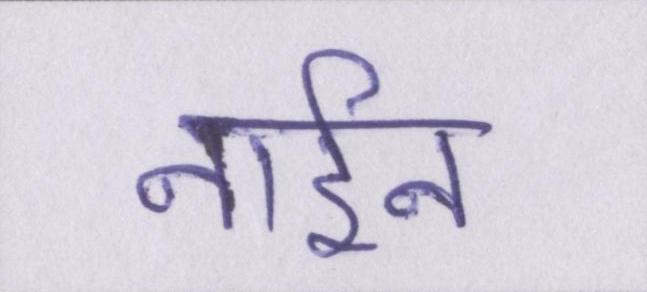 नाईन